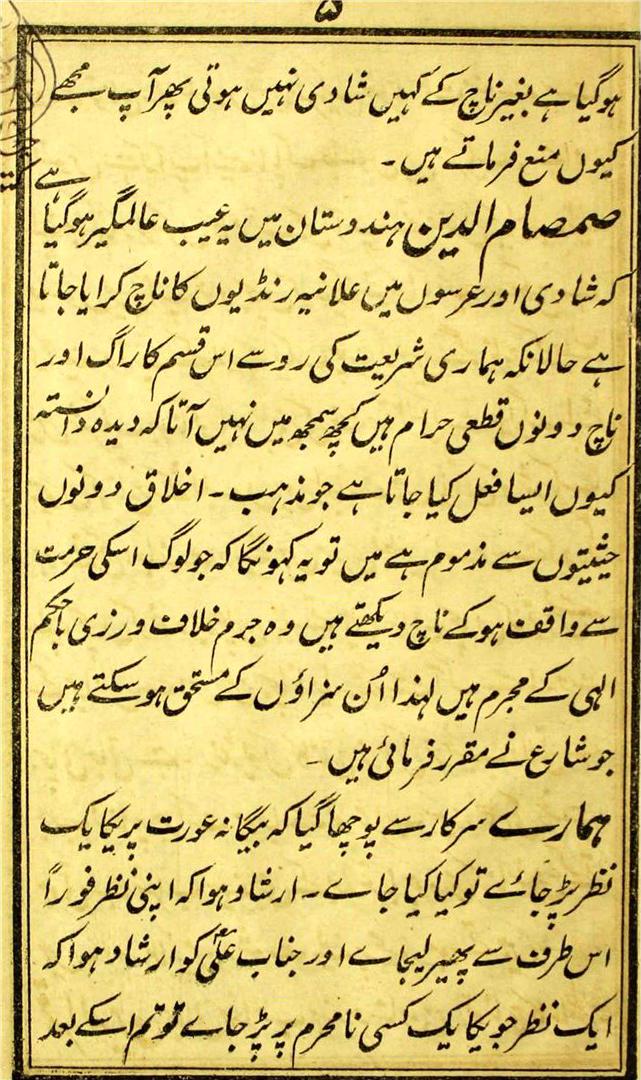 ۵
ہوگیا ہے بغیر ناچ کے کہیں شادی نہیں ہوتی پھر آپ مجھے
کیوں منع فرماتے ہیں۔
صمصام الدین ہندوستان میں یہ عیب عالمگیر ہوگیا ہے
کہ شادی اور عرسوں میں علانیہ رنڈیوں کا ناچ کرایا جاتا
ہے حالانکہ ہماری شریعت کی رو سے اس قسم کا راگ اور
ناچ دونوں قطعی حرام ہیں کچھ سمجھ میں نہیں آتا کہ دیدہ دانستہ
کیوں ایسا فعل کیا جاتا ہے جو مذہب۔ اخلاق دونوں
حیثیتوں سے مذموم ہے میں تو یہ کہونگا کہ جو لوگ اسکی حرمت
سے واقف ہوکے ناچ دیکھتے ہیں وہ جرم خلاف ورزی باحکم
الہی کے مجرم ہیں لہذا اُن سزاؤں کے مستحق ہوسکتے ہیں
جو شارع نے مقرر فرمائی ہیں۔
ہمارے سرکار سے پوچھا گیا کہ بیگانہ عورت پر یکایک
نظر پڑ جائے تو کیا کیا جاے۔ ارشاد ہوا کہ اپنی نظر فوراً
اس طرف سے پھیر لیجاے اور جناب علیؑ کو ارشاد ہوا کہ
ایک نظر جو یکایک کسی نامحرم پر پڑ جاے تو تم اسکے بعد